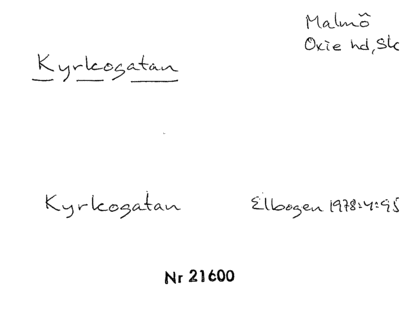 Malmö
Oxie hd, Sk
Kyrkogatan
Kyrkogatan Elbogen 1978:4:95
Nr 21600